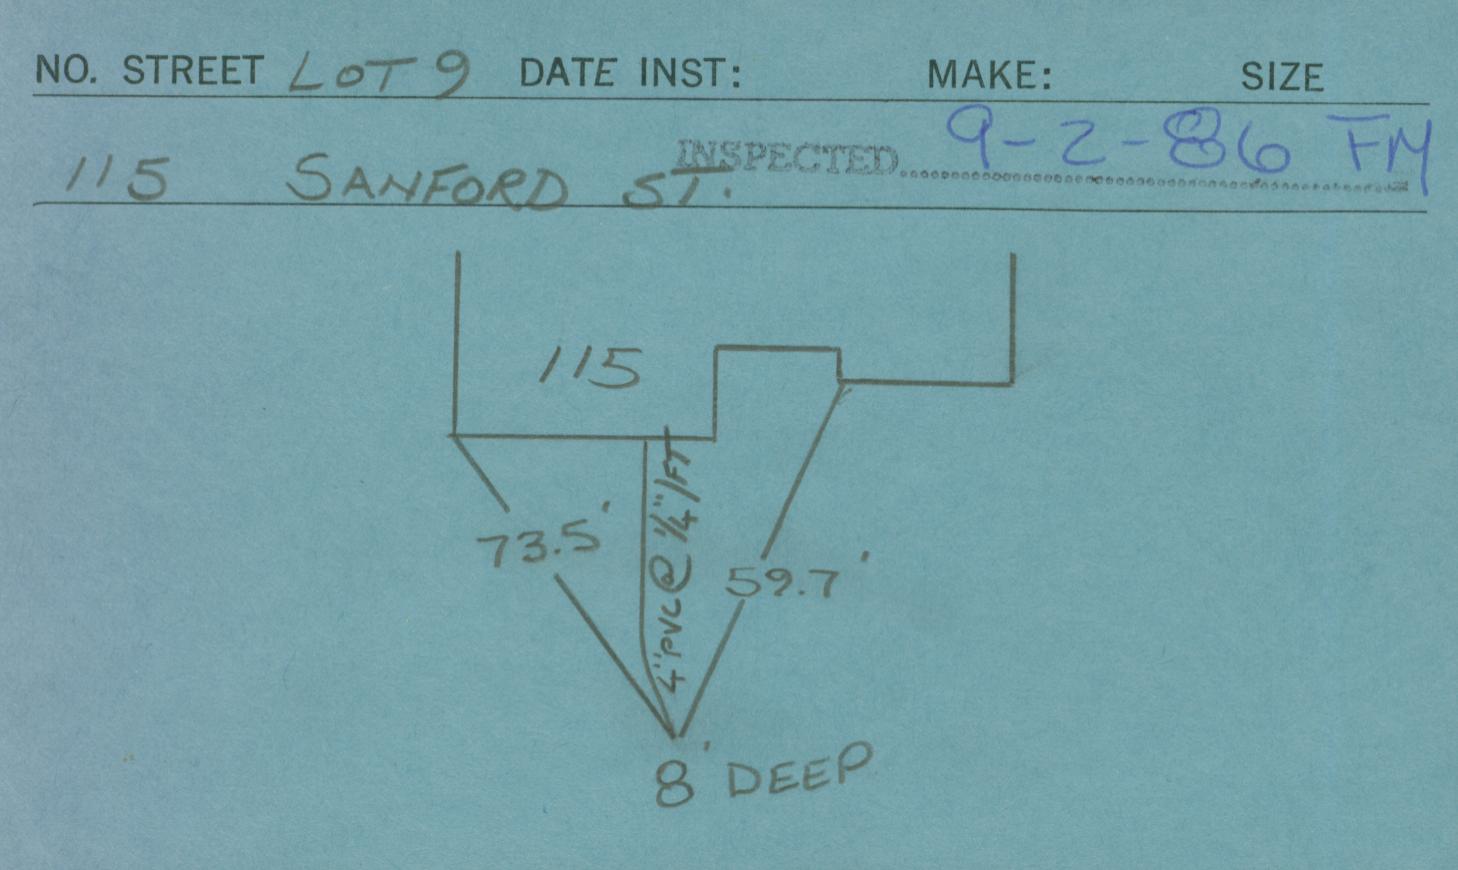 NO. STREET LOT 9 DATE INST: MAKE: SIZE
115 SANFORD ST. INSPECTED 9-2-86 FM
115
4" PVC @ 1/4"/FT
73.5'
59.7'
8' DEEP